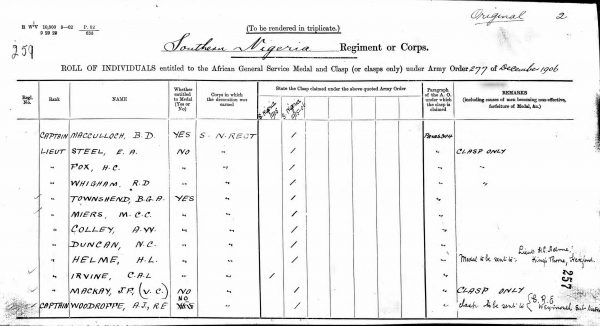 H W V 10,000 9—02 P. 52
Original 2
(To be rendered in triplicate.)
259
Southern Nigeria Regiment or Corps.
ROLL OF INDIVIDUALS entitled to the African General Service Medal and Clasp (or clasps only) under Army Order 277 of December 1906
Regl. No. Rank NAME Whether entitled to Medal (Yes or No) Corps in which the decoration was earned State the Clasp claimed under the above quoted Army Order Paragraph of the A. O. under which the clasp is claimed REMARKS (including causes of men becoming non-effective, forfeiture of Medal, &c.)
S. Nigeria S. Nigeria
CAPTAIN MACCULLOCH, B.D. YES S-N-REGT /
LIEUT STEEL, E.A. NO " / CLASP ONLY
" FOX, H.C. " " / " "
" WHIGHAM, R.D " " / " "
" TOWNSHEND, B.G.A. YES " /
" MIERS, M.C.C. " " /
" COLLEY, A.W. " " /
" DUNCAN, N.C. " " /
" HELME, H.L. " " / Medal to be sent to :- Lieut H.L. Helme,
" IRVINE, C.A.L " " /
" MACKAY, J.P. (V.C.) NO " / CLASP ONLY
CAPTAIN WOODROFFE, A.J., R.E NO " / Clasp to be sent to C.R.E
257